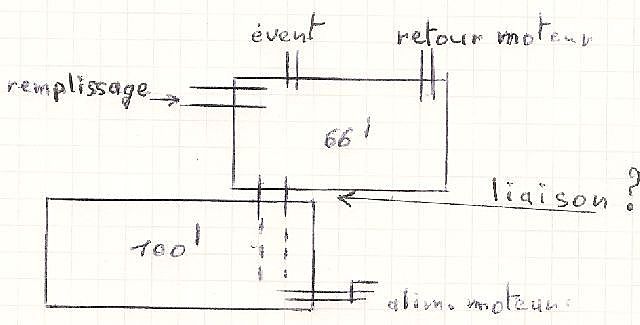 évent
retour moteur
remplissage
66 l
liaison ?
100 l
alim. moteur